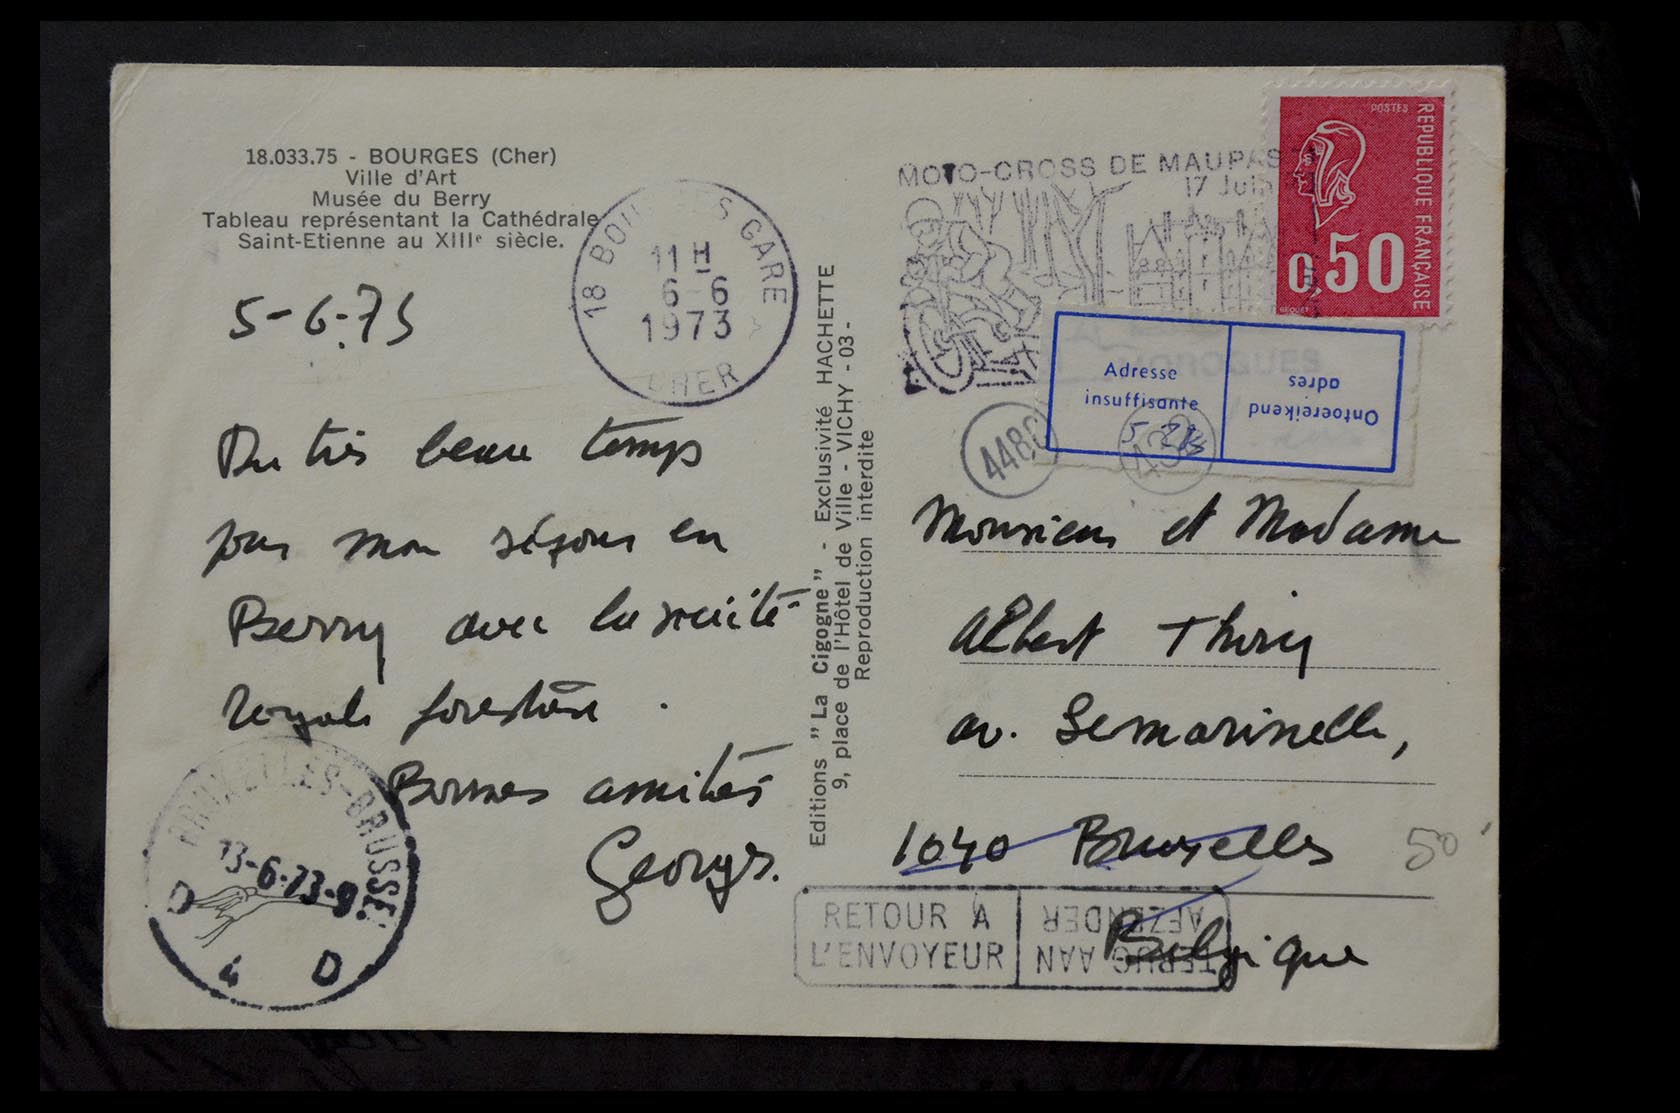 18.033.75 - BOURGES (Cher)
Ville d'Art
Musée du Berry
Tableau représentant la Cathédrale
Saint-Etienne au XIIIe siècle.
5-6-73
Du très beau temps
pour mon séjour en
Berry avec la société
royale forestière.
Bonnes amitiés
Georges.
18 BOURGES GARE
11 H
6-6
1973
CHER
BRUXELLES-BRUSSEL
13-6-73-9
D 4 D
Editions "La Cigogne" - Exclusivité HACHETTE
9, place de l'Hôtel de Ville - VICHY - 03 -
Reproduction interdite
MOTO-CROSS DE MAUPAS
17 Juin
MOROGUES
POSTES
REPUBLIQUE FRANÇAISE
0,50
BEQUET
Adresse
insuffisante
Ontoereikend
adres
448
Monsieur et Madame
Albert Thiry
av. Semarinelle,
1040 Bruxelles
Belgique
50
RETOUR A
L'ENVOYEUR
TERUG AAN
AFZENDER